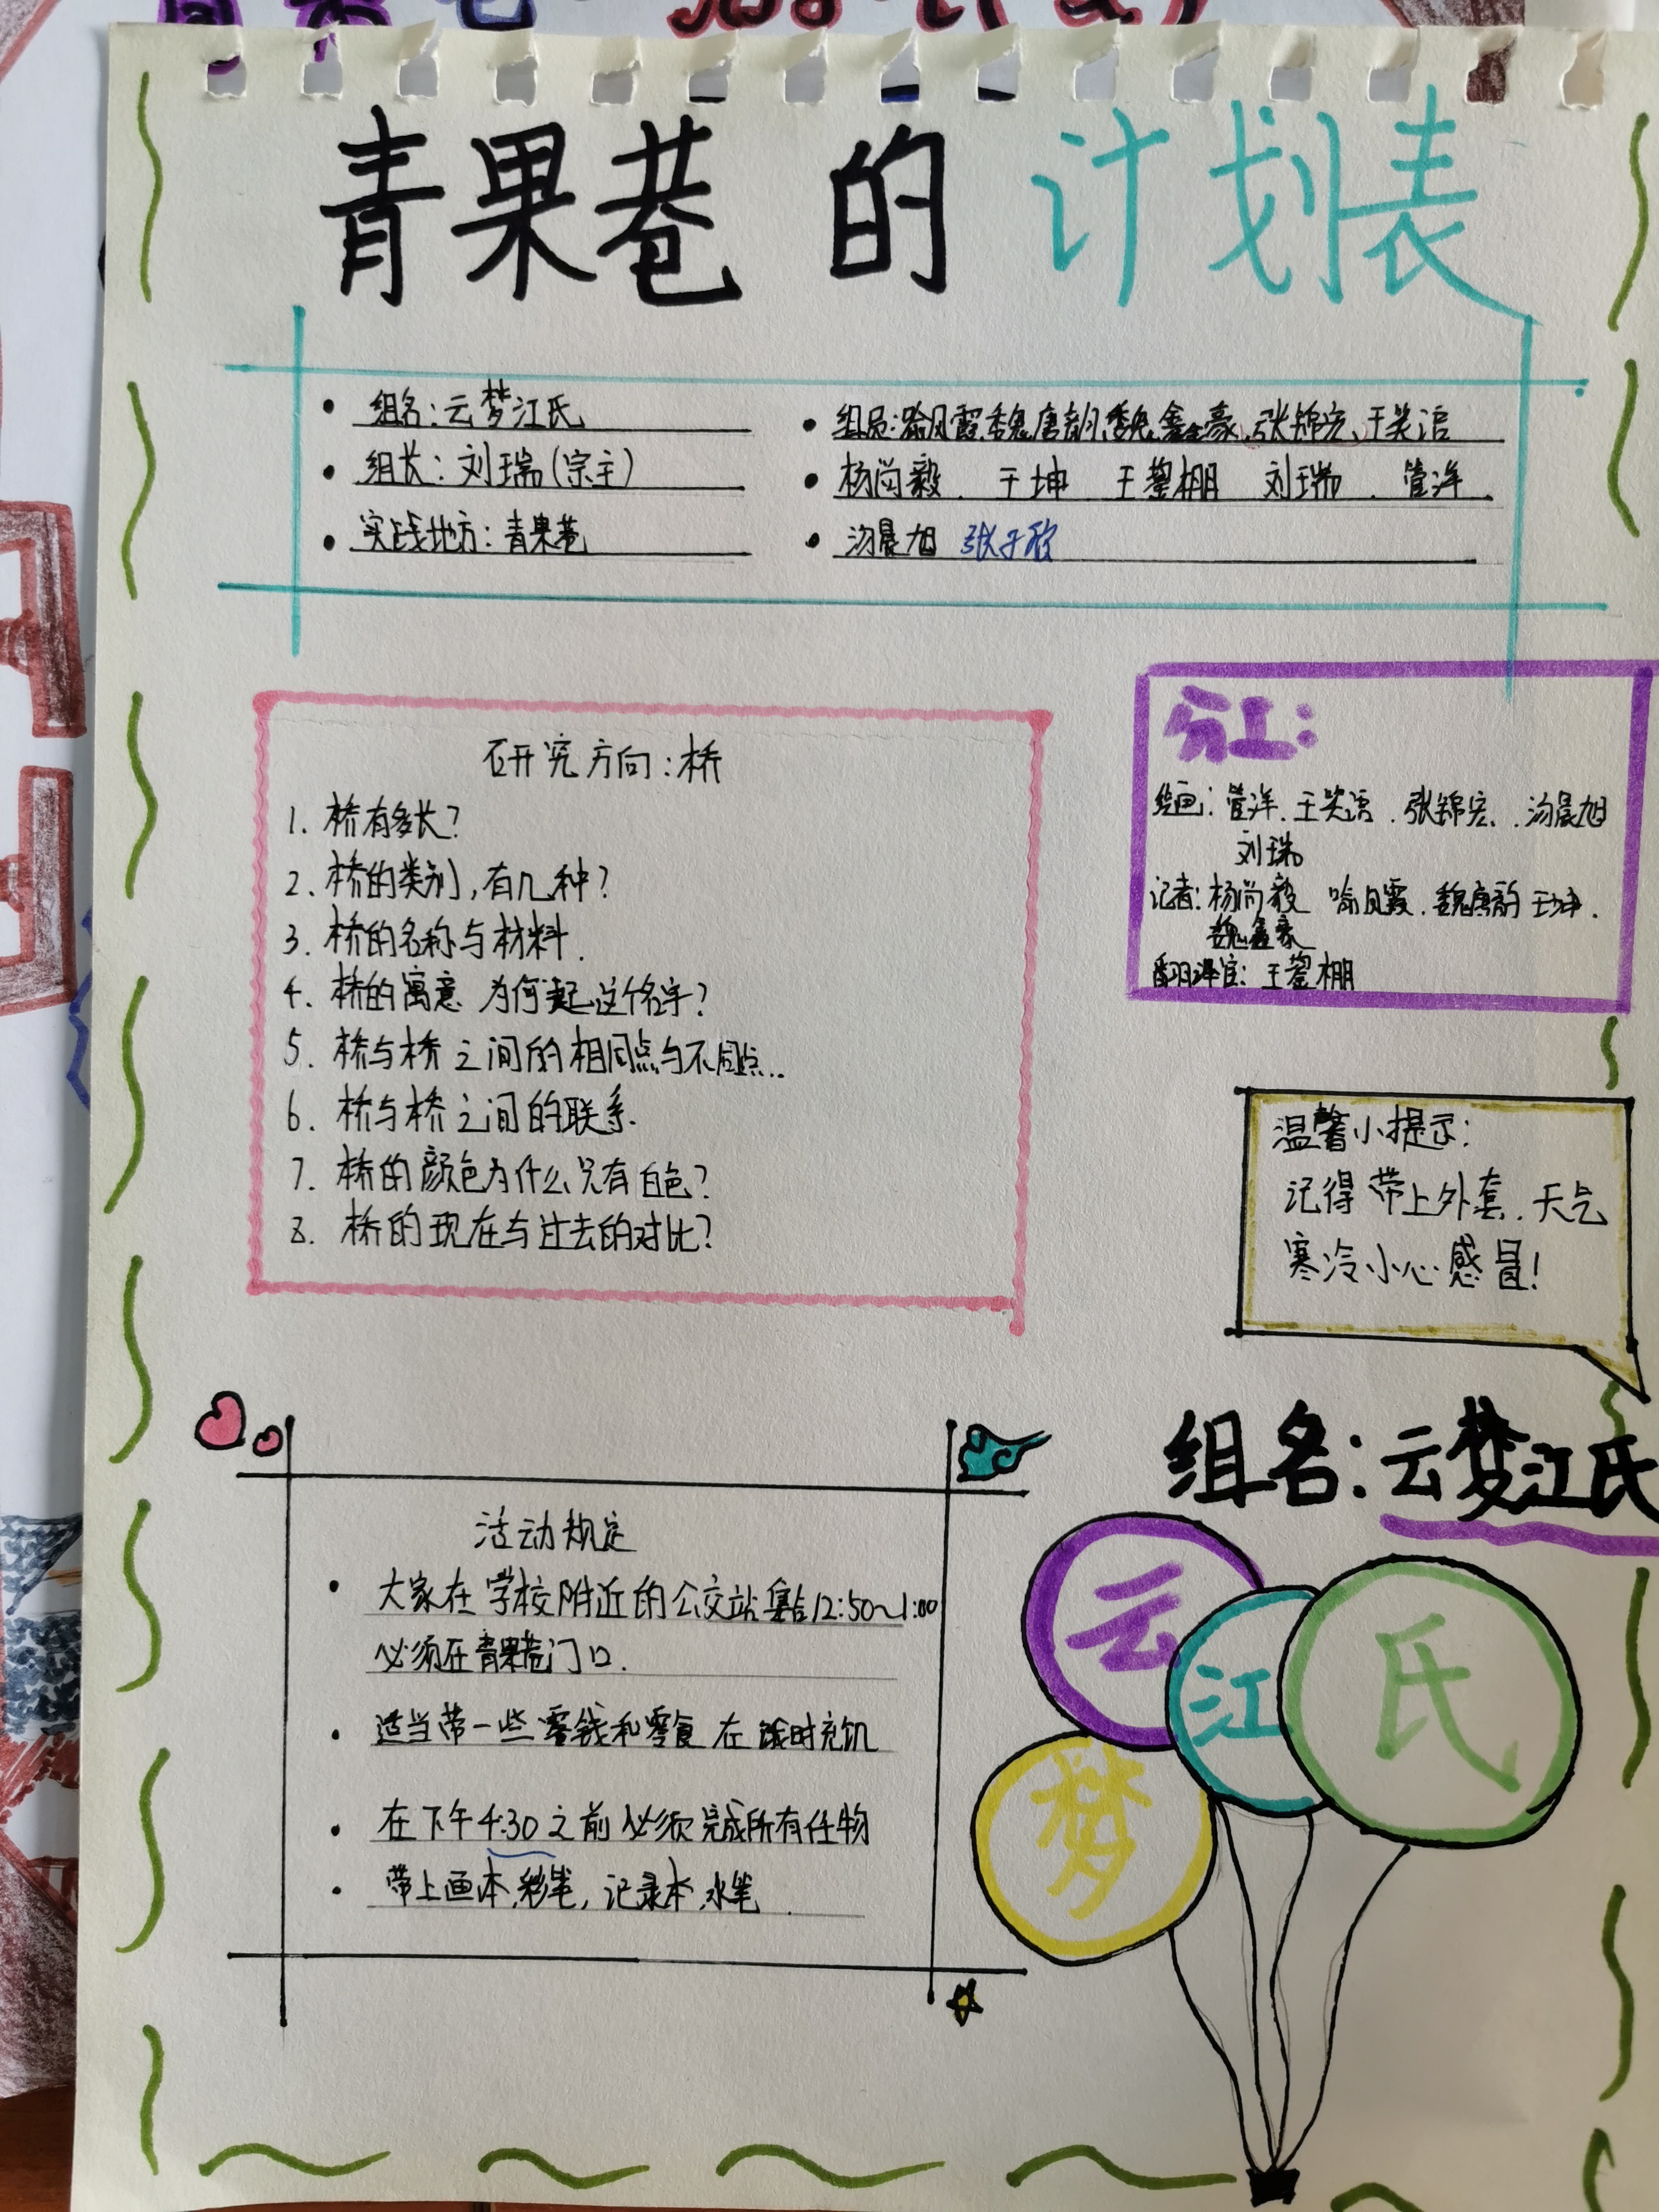 青果巷 的 计划表
组名:云梦江氏
组长:刘瑞(宗主)
实践地方:青果巷
组员:喻凤霞、魏唐韵、魏鑫豪、张锦宏、王笑语
杨尚毅、于坤 王 棚 刘瑞、管洋、
汤晨旭 张子欣
研究方向:桥
1. 桥有多长?
2. 桥的类别,有几种?
3. 桥的名称与材料.
4. 桥的寓意 为何起这个名字?
5. 桥与桥之间的相同点与不同点...
6. 桥与桥之间的联系.
7. 桥的颜色为什么只有白色?
8. 桥的现在与过去的对比?
分工:
绘画:管洋、王笑语、张锦宏、汤晨旭
刘瑞
记者:杨尚毅 喻凤霞、魏唐韵 于坤、
魏鑫豪
翻译官:王 棚
温馨小提示:
记得带上外套、天气
寒冷小心感冒!
活动规定
大家在学校附近的公交站集合12:50~1:00
必须在青果巷门口.
适当带一些零钱和零食 在饿时充饥
在下午4:30之前必须完成所有任物
带上画本,彩笔,记录本,水笔.
组名:云梦江氏
云
江
氏
梦